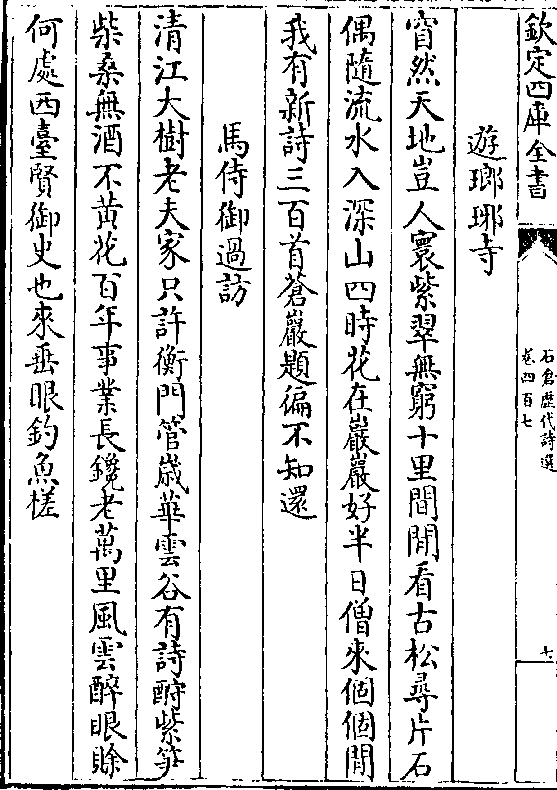 欽定四庫全書
石倉歷代詩選
卷四百七
七
遊瑯琊寺
窅然天地豈人寰紫翠無窮十里間閒看古松尋片石
偶隨流水入深山四時花在巖巖好半日僧來個個閒
我有新詩三百首蒼巖題徧不知還
馬侍御過訪
清江大樹老夫家只許衡門管歲華雲谷有詩酧紫笋
柴桑無酒不黄花百年事業長鑱老萬里風雲醉眼賖
何處西臺賢御史也來垂眼釣魚槎